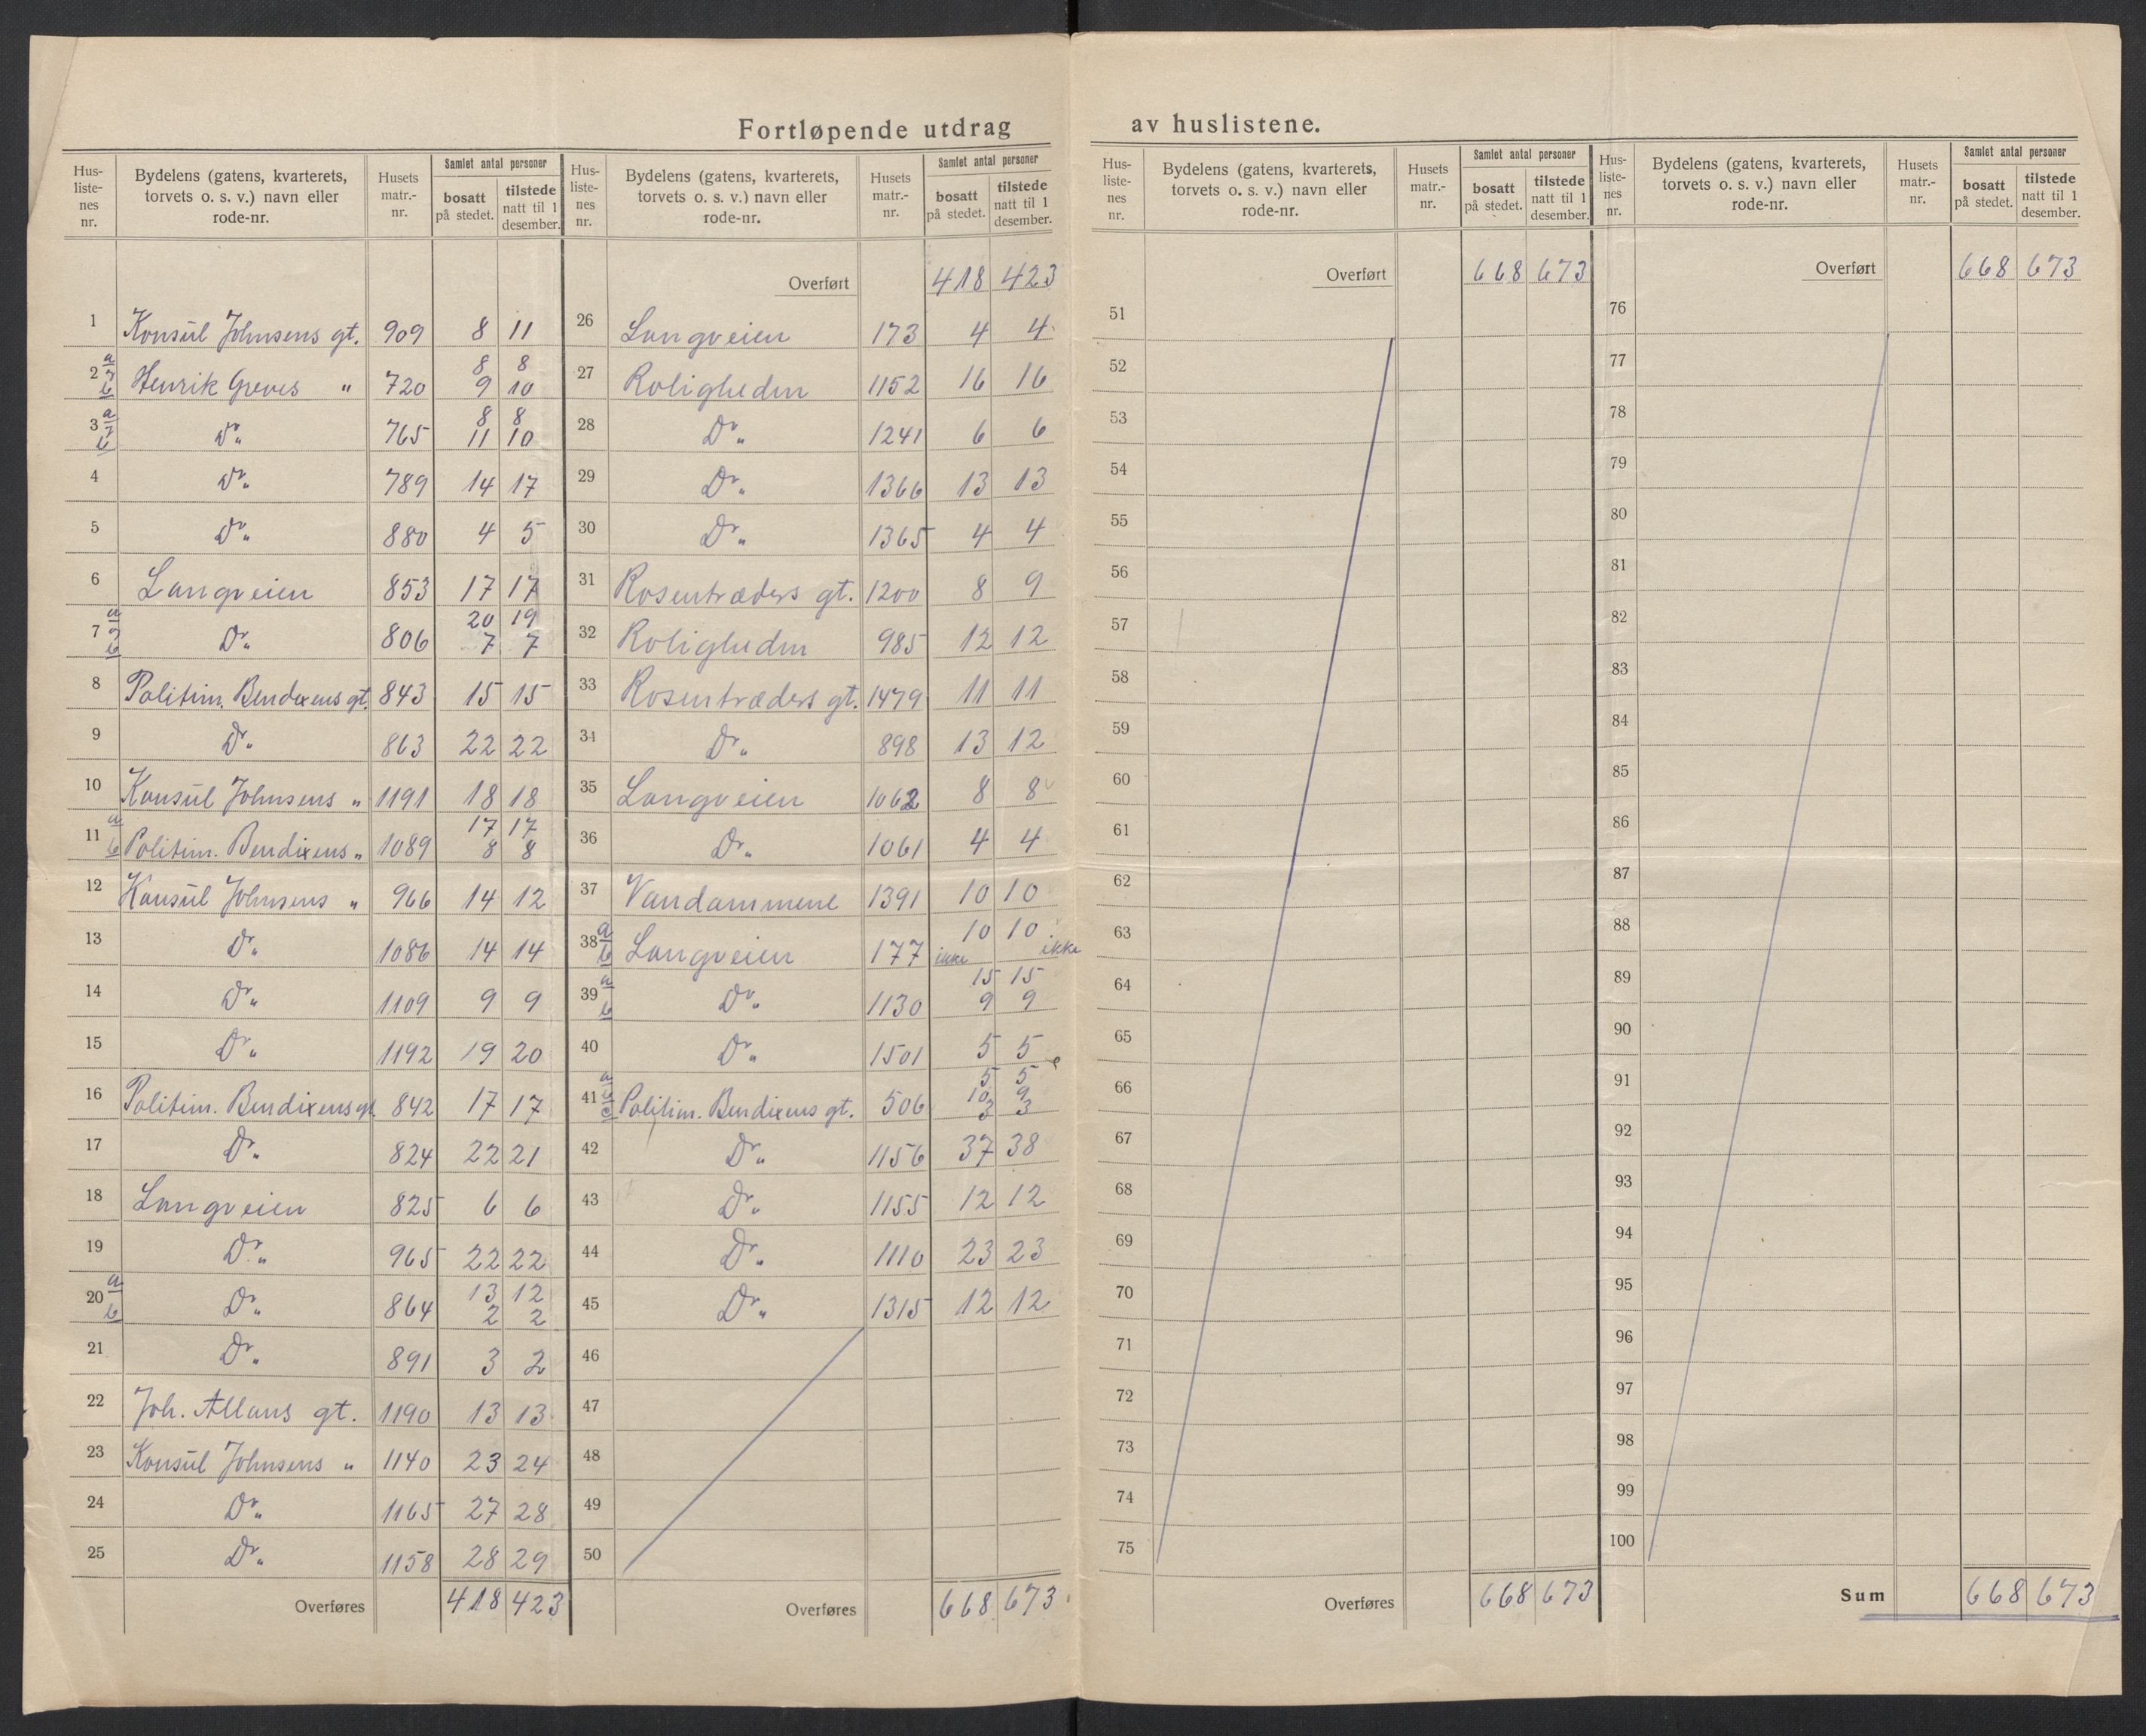 Fortløpende utdrag av huslistene.
Hus-liste-nes nr. | Bydelens (gatens, kvarterets, torvets o. s. v.) navn eller rode-nr. | Husets matr.-nr. | Samlet antal personer bosatt på stedet. | tilstede natt til 1 desember.
1 Konsül Johnsens gt. 909 8 11
2 a/b Henrik Greves " 720 8 8 / 9 10
3 a/b Do " 765 8 8 / 11 10
4 Do " 789 14 17
5 Do " 880 4 5
6 Langveien 853 17 17
7 a/b Do " 806 20 19 / 7 7
8 Politim. Bendixens gt. 843 15 15
9 Do " 863 22 22
10 Konsül Johnsens " 1191 18 18
11 a/b Politim. Bendixens " 1089 17 17 / 8 8
12 Konsül Johnsens " 966 14 12
13 Do " 1086 14 14
14 Do " 1109 9 9
15 Do " 1192 19 20
16 Politim. Bendixens gt. 842 17 17
17 Do " 824 22 21
18 Langveien 825 6 6
19 Do " 965 22 22
20 a/b Do " 864 13 12 / 2 2
21 Do " 891 3 2
22 Joh. Allans gt. 1190 13 13
23 Konsül Johnsens " 1140 23 24
24 Do " 1165 27 28
25 Do " 1158 28 29
Overføres 418 423
Hus-liste-nes nr. | Bydelens (gatens, kvarterets, torvets o. s. v.) navn eller rode-nr. | Husets matr.-nr. | Samlet antal personer bosatt på stedet. | tilstede natt til 1 desember.
Overført 418 423
26 Langveien 173 4 4
27 Roligheden 1152 16 16
28 Do " 1241 6 6
29 Do " 1366 13 13
30 Do " 1365 4 4
31 Rosentræders gt. 1200 8 9
32 Roligheden 985 12 12
33 Rosentræders gt. 1479 11 11
34 Do " 898 13 12
35 Langveien 1062 8 8
36 Do " 1061 4 4
37 Vandammene 1391 10 10
38 a/b Langveien 177 10 10 / ikke ikke
39 a/b Do " 1130 15 15 / 9 9
40 Do " 1501 5 5
41 a/b/c Politim. Bendixens gt. 506 5 5 / 10 9 / 3 3
42 Do " 1156 37 38
43 Do " 1155 12 12
44 Do " 1110 23 23
45 Do " 1315 12 12
46
47
48
49
50
Overføres 668 673
Hus-liste-nes nr. | Bydelens (gatens, kvarterets, torvets o. s. v.) navn eller rode-nr. | Husets matr.-nr. | Samlet antal personer bosatt på stedet. | tilstede natt til 1 desember.
Overført 668 673
51
52
53
54
55
56
57
58
59
60
61
62
63
64
65
66
67
68
69
70
71
72
73
74
75
Overføres 668 673
Hus-liste-nes nr. | Bydelens (gatens, kvarterets, torvets o. s. v.) navn eller rode-nr. | Husets matr.-nr. | Samlet antal personer bosatt på stedet. | tilstede natt til 1 desember.
Overført 668 673
76
77
78
79
80
81
82
83
84
85
86
87
88
89
90
91
92
93
94
95
96
97
98
99
100
Sum 668 673